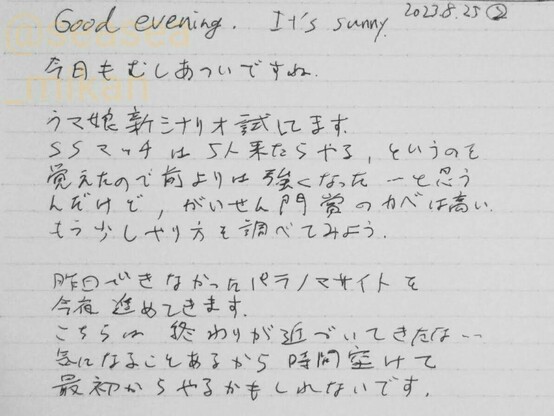 Good evening. It's sunny.
2023.8.25 ②
@seasea
_mikan
今日もむしあついですね.
ウマ娘新シナリオ試してます.
SSマッチは5人来たらやる,というのを
覚えたので前よりは強くなった…と思う
んだけど,がいせん門賞のカベは高い.
もう少しやり方を調べてみよう.
昨日できなかったパラノマサイトを
今夜進めてきます.
こちらは終わりが近づいてきたな…
気になることあるから時間空けて
最初からやるかもしれないです.